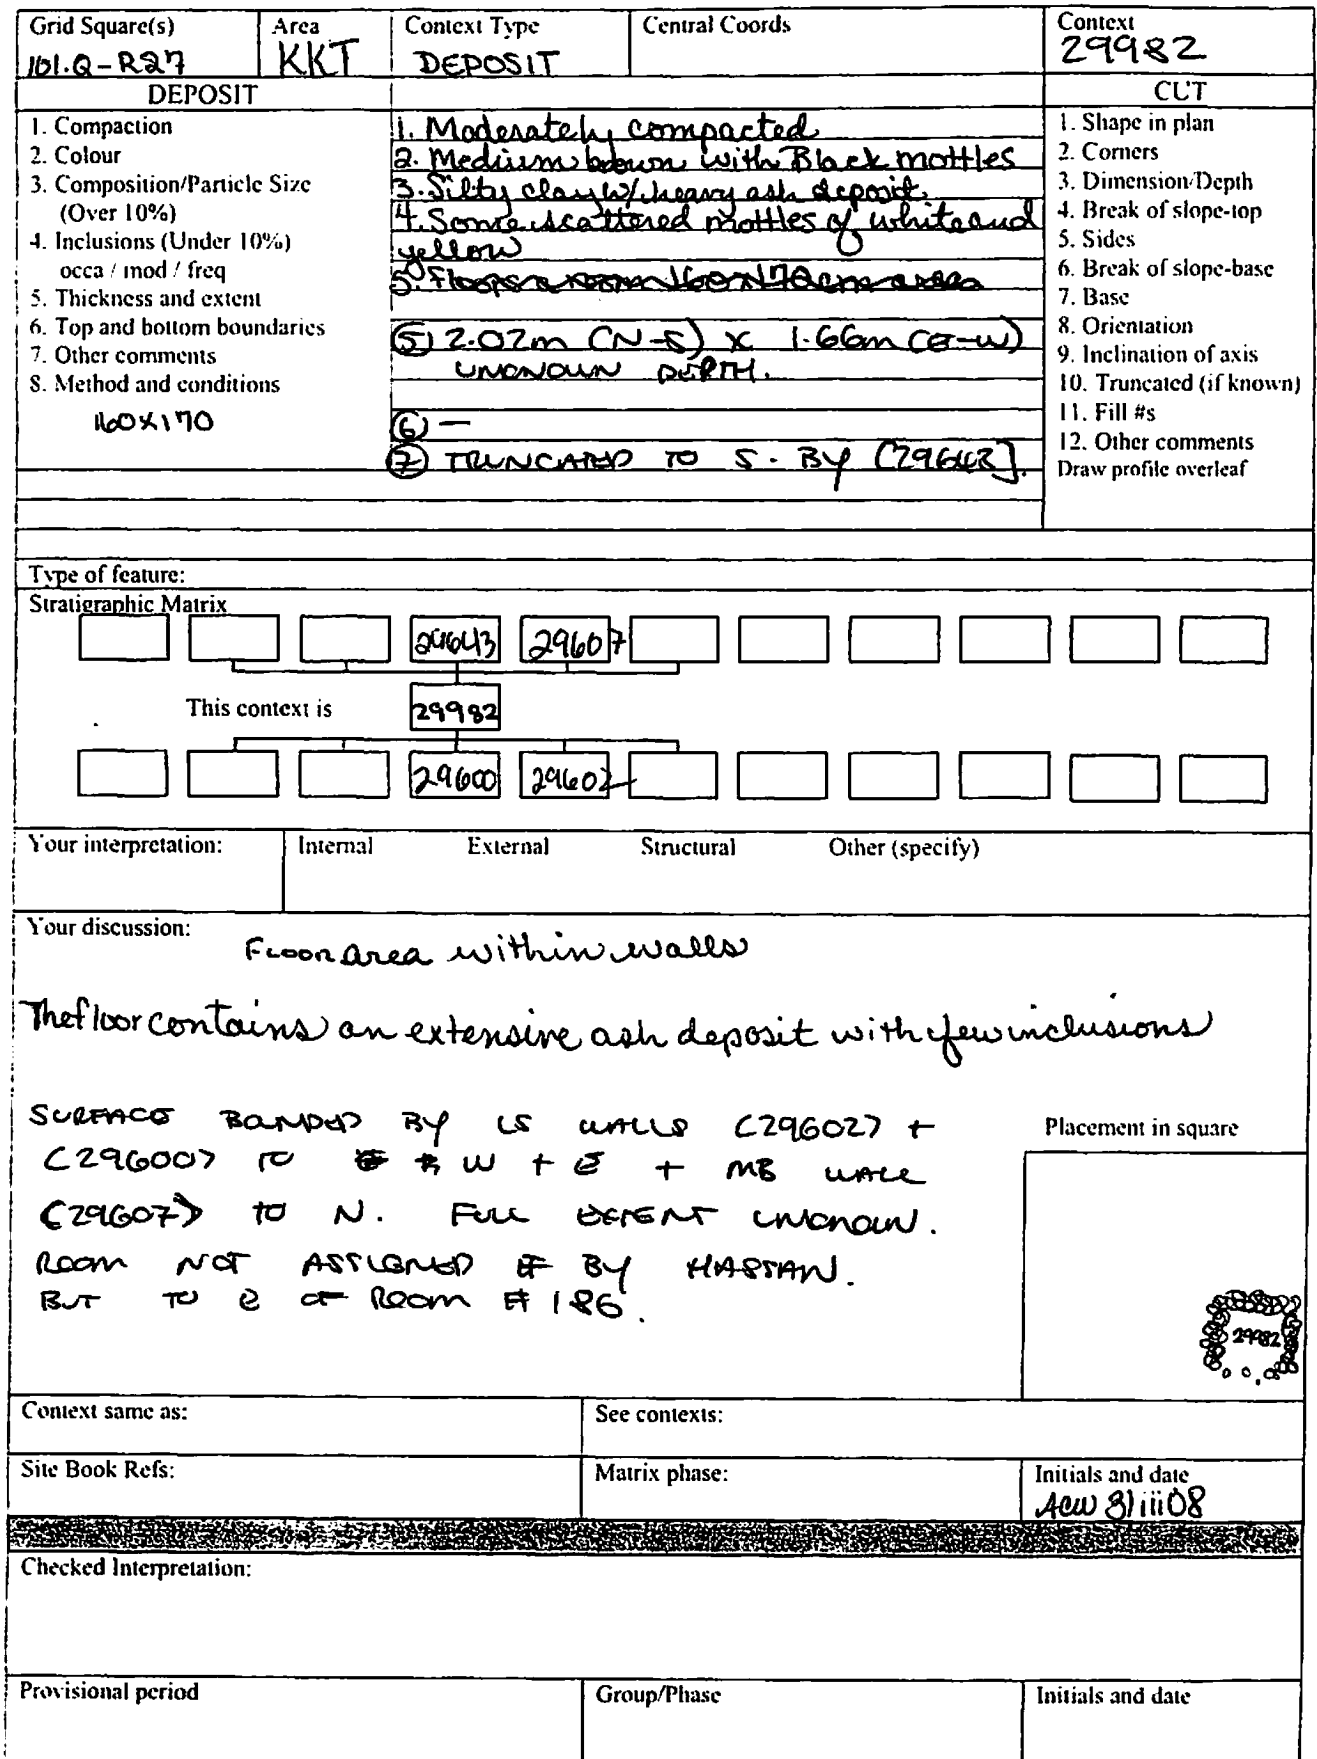 Grid Square(s) Area Context Type Central Coords Context
101.Q-R27 KKT DEPOSIT 29982
DEPOSIT CUT
1. Compaction
2. Colour
3. Composition/Particle Size
(Over 10%)
4. Inclusions (Under 10%)
occa / mod / freq
5. Thickness and extent
6. Top and bottom boundaries
7. Other comments
8. Method and conditions
160X170
1. Moderately compacted
2. Medium brown with Black mottles
3. Silty clay w/ heavy ash deposit.
4. Some scattered mottles of white and
yellow
(5) 2.02m (N-S) X 1.66m (E-W)
UNKNOWN DEPTH.
(6) —
(7) TRUNCATED TO S. BY [29643].
1. Shape in plan
2. Corners
3. Dimension/Depth
4. Break of slope-top
5. Sides
6. Break of slope-base
7. Base
8. Orientation
9. Inclination of axis
10. Truncated (if known)
11. Fill #s
12. Other comments
Draw profile overleaf
Type of feature:
Stratigraphic Matrix
29643 29607
This context is 29982
29600 29602
Your interpretation: Internal External Structural Other (specify)
Your discussion:
Floor area within walls
The floor contains an extensive ash deposit with few inclusions
SURFACE BOUNDED BY LS WALLS <29602> +
<29600> TO W + E + MB WALL
<29607> TO N. FULL EXTENT UNKNOWN.
ROOM NOT ASSIGNED # BY HASSAN.
BUT TO E OF ROOM # 186.
Placement in square
29982
Context same as: See contexts:
Site Book Refs: Matrix phase: Initials and date
ACW 31iii08
Checked Interpretation:
Provisional period Group/Phase Initials and date